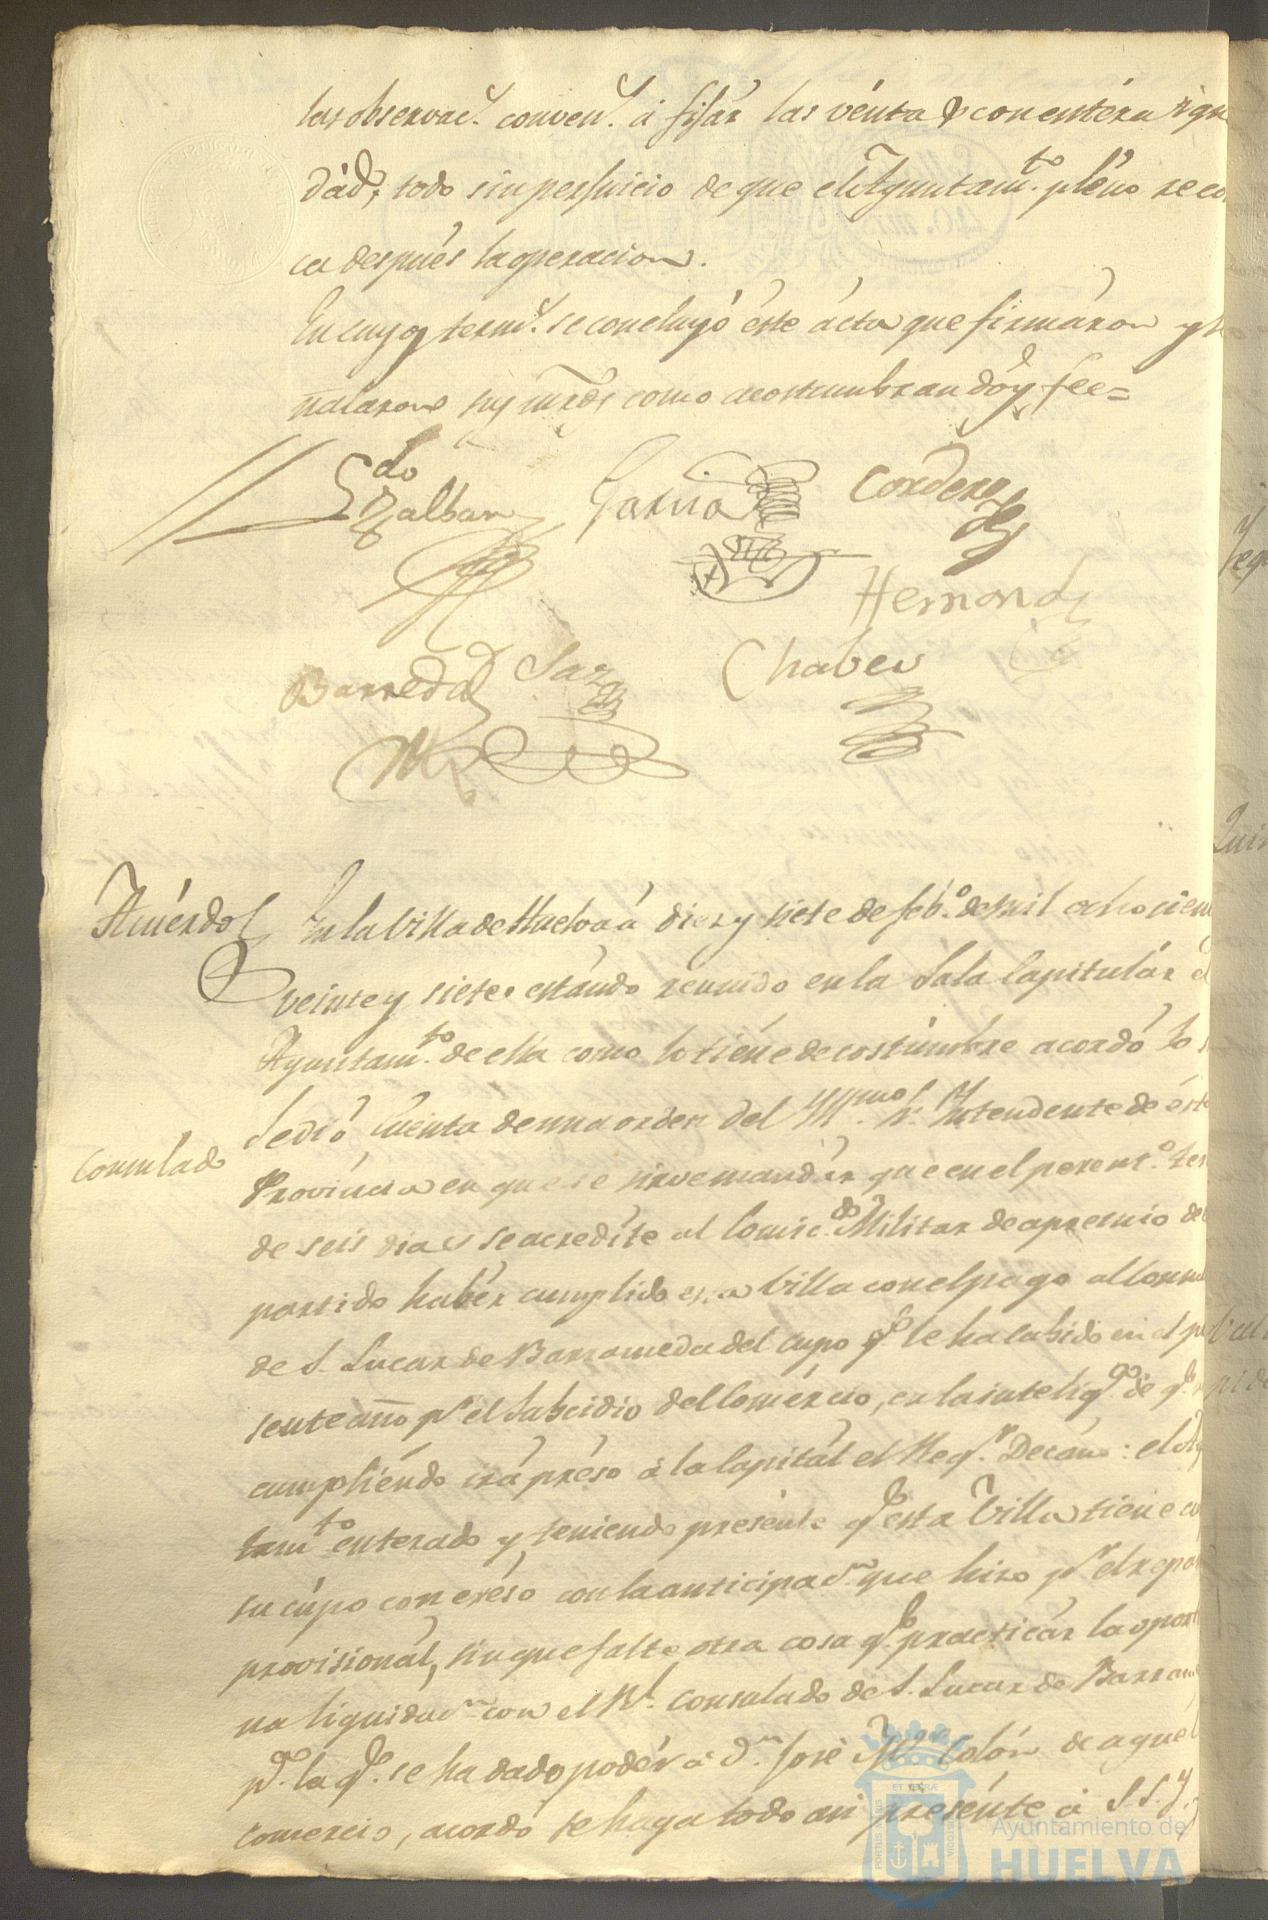 las observac.s conven.s á fijár las vénta y con entéra
dád, todo sin perjuicio de que el Ayuntam.to pleno
ca después la operacion.
En cuyos term.s se concluyó éste ácta que firmáron y
ñalaron sus mrds como acostumbran dóy fee=
Lzdo Zalban Garcia Cordero
Hernand
Barreda Saz Chabes
Acuérdo En la Villa de Huelva á diez y siete de feb.o de mil ochocien
veinte y siete estándo reunido en la Sála Capitulár él
Ayuntam.to de ella como lo tiéne de costúmbre acordó lo
Se dió cuenta de una orden del Yllmo. Sr. Yntendente de éste
Consulado
Província en que se sirve mandár que en el perent.o ter
de seis dias se acredíte al Comic.do Militar de apremio del
partido habér cumplido esta Villa con el pago al Consul
de S. Lucar de Barrameda del cupo q.e le ha cabido en el pre
sente año p.r el Subcidio del Comércio, en la intelig.a de q.e
cumpliéndo irá préso á la Capitál el Reg.r Decáno: el Ay
tam.to enterado y teniendo presénte q.e esta Villa tiene
su cúpo con eréso con la anticipac.n que hizo p.r el repar
provisionál, sin que falte otra cosa q.e practicár la oport
na liquidac.n con el Rl. Consulado de S. Lucar de Barram
p.a la q.e se ha dado podér á D.n José M.a Colón de aquél
comercio, acordó se haga todo asi presénte á S.S.Y.
ET TERRÆ
PORTUS MARIS
CUSTODIA
Ayuntamiento de
HUELVA